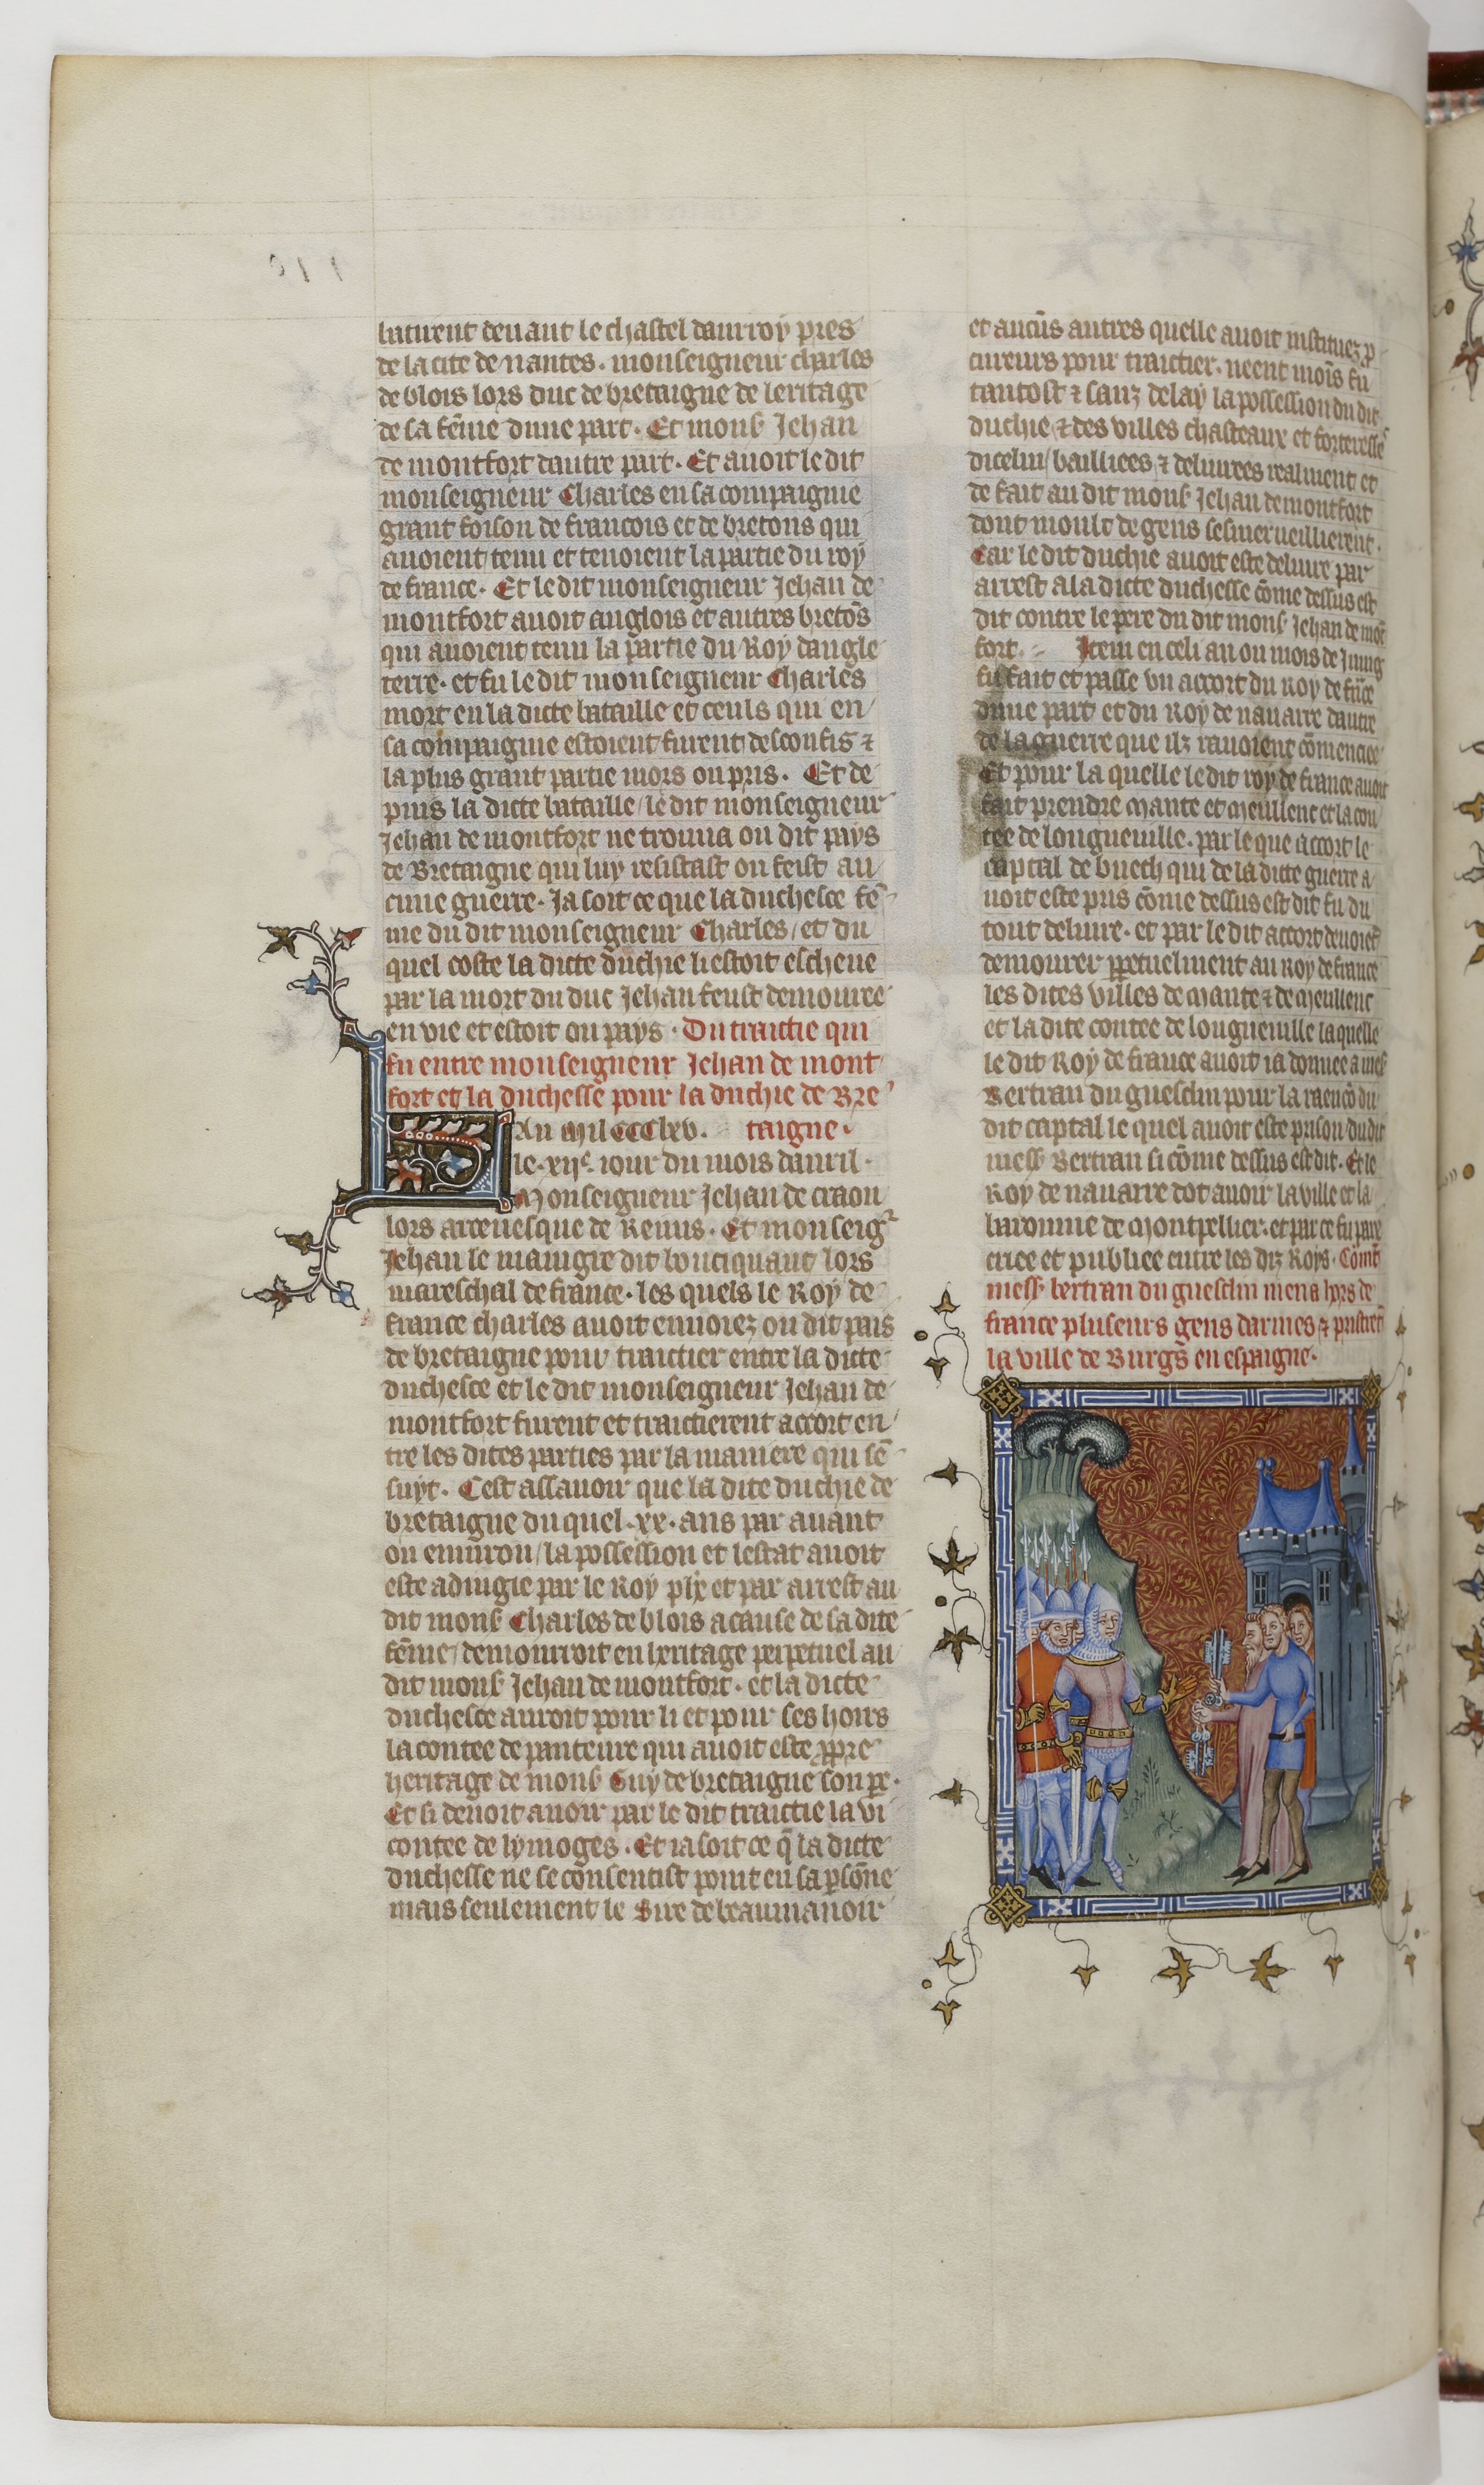 batirent deuant le chastel daurroy pres
de la cite de nantes. monseigneur charles
de blois lors duc de bretaigne de leritage
de sa fẽme dune part. Et mons Jehan
de montfort dautre part. Et auoit le dit
monseigneur Charles en sa compaignie
grant foison de francois et de bretons qui
auoient tenu et tenoient la partie du roy
de france. Et le dit monseigneur Jehan de
montfort auoit anglois et autres bretõs
qui auoient tenu la partie du Roy dangle
terre. et fu le dit monseigneur Charles
mort en la dicte bataille et ceuls qui en
sa compaignie estoient furent desconfis ⁊
la plus grant partie mors ou pris. Et de
puis la dicte bataille le dit monseigneur
Jehan de montfort ne trouua ou dit pays
de Bretaigne qui luy resistast ou feist au
cune guerre. Ja soit ce que la duchesce fẽ
me du dit monseigneur Charles / et du
quel coste la dicte duchie li estoit escheue
par la mort du duc Jehan feust demouree
en vie et estoit ou pays. Du traictie qui
fu entre monseigneur Jehan de mont
fort et la duchesse pour la duchie de Bre
Lan Mil CCClxv. taigne.
le .xijᵉ. iour du mois dauril.
Monseigneur Jehan de craon
lors arceuesque de Reims. Et monseigʳ
Jehan le maingre dit bouciquaut lors
mareschal de france. les quels le Roy de
france charles auoit enuoiez ou dit pais
de bretaigne pour traictier entre la dicte
duchesce et le dit monseigneur Jehan de
montfort furent et traictierent accort en
tre les dites parties par la maniere qui sẽ
suyt. Cest assauoir que la dite duchie de
bretaigne du quel .xx. ans par auant
ou enuiron / la possession et lestat auoit
este adiugie par le Roy phẽ et par arrest au
dit mons Charles de blois a cause de sa dite
fẽme / demourroit en heritage perpetuel au
dit mons Jehan de montfort. et la dicte
duchesce auroit pour li et pour ses hoirs
la contee de panteure qui auoit este ꝓpre
heritage de mons Guy de bretaigne son pe.
Et si deuoit auoir par le dit traictie la vi
contee de lymoges. Et ia soit ce q̃ la dicte
duchesse ne se consentist point en sa ꝑsõne
mais seulement le Sire de beaumanoir
et aucũs autres quelle auoit instituez ꝓ
cureurs pour traictier. neent moĩs fu
tantost ⁊ sanz delay la possession du dit
duchie ⁊ des villes chasteaux et forteresses
dicelui / bailliees ⁊ deliurees realment et
de fait au dit mons Jehan de montfort
dont moult de gens sesmerueillierent.
Car le dit duchie auoit este deliure par
arrest a la dicte duchesse cõme dessus est
dit contre le pere du dit mons Jehan de mõt
fort. Item en celi an ou mois de Juing
fu fait et passe vn accort du Roy de frãce
dune part et du Roy de nauarre dautre
de la guerre que ilz rauoient cõmencee
Et pour la quelle le dit roy de france auoit
fait prendre Mante et Meullent et la con
tee de longueuille. par le que accort le
captal de buech qui de la dicte guerre a
uoit este pris cõme dessus est dit fu du
tout deliure. et par le dit accort deuoiẽt
demourer ꝑpetuelment au Roy de france
les dites villes de Mante ⁊ de Meullent
et la dite contee de longueuille la quelle
le dit Roy de france auoit ia donnee a mess
Bertran du guesclin pour la raençõ du
dit captal le quel auoit este prison du dit
mess Bertran si cõme dessus est dit. Et le
Roy de nauarre dot auoir la ville et la
baronnie de Montpellier. et par ce fu paix
criee et publiee entre les diz Roys. Cõmẽt
mess bertran du guesclin mena hors de
france pluseurs gens darmes ⁊ pristrẽt
la ville de Burgs en espaigne.